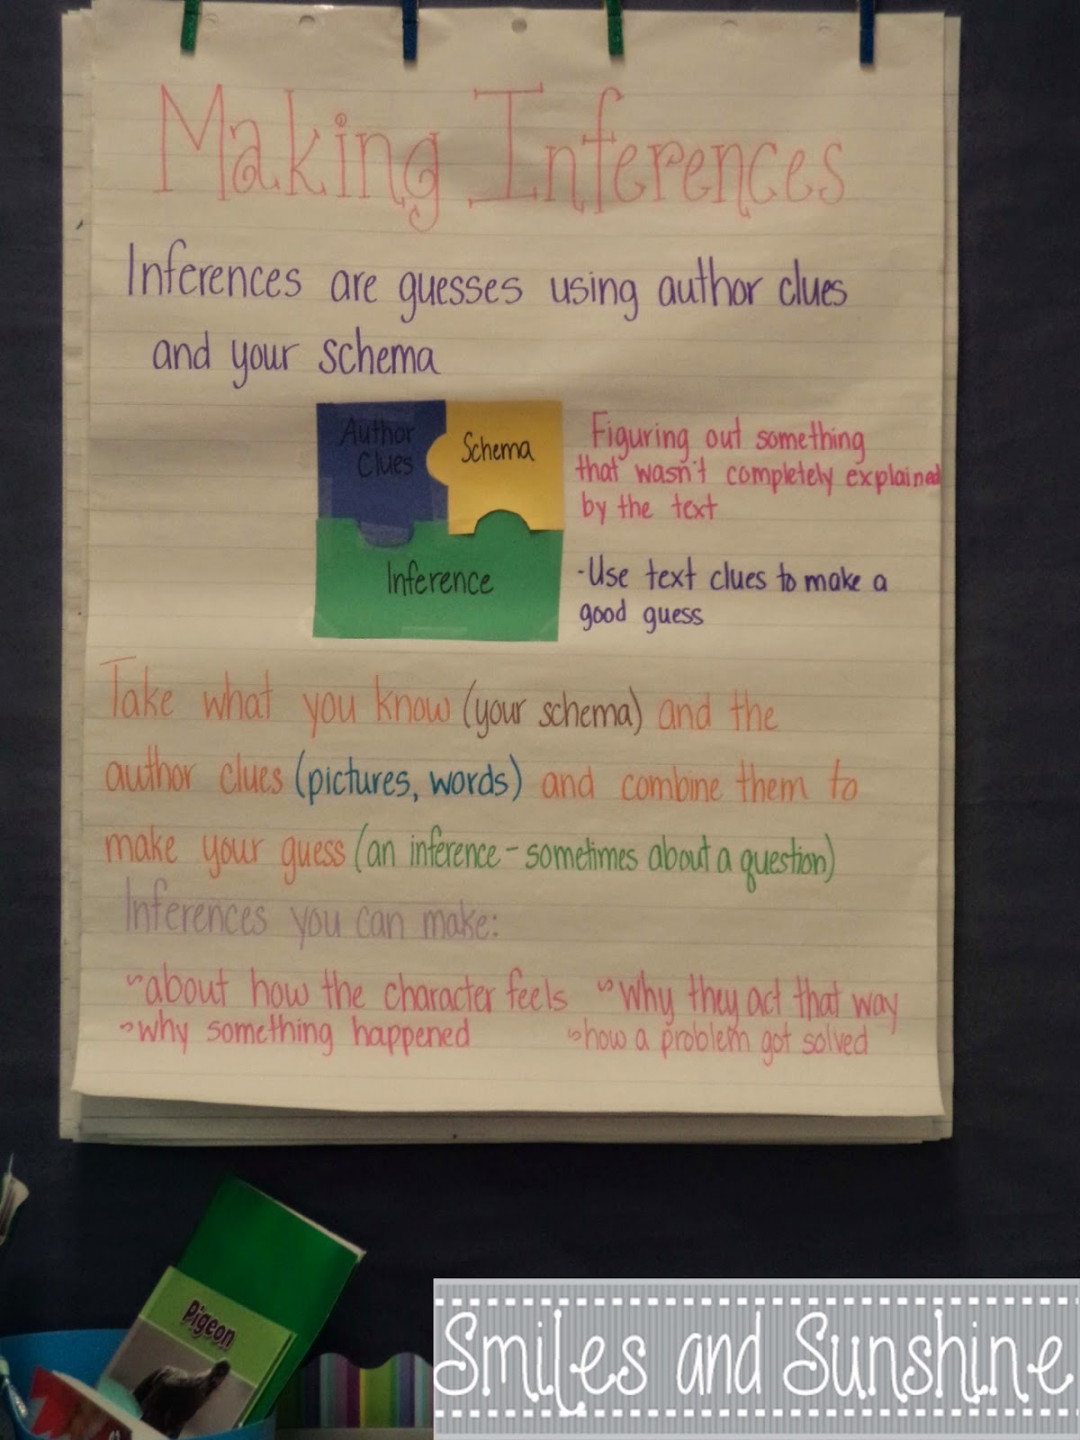 Making Inferences
Inferences are guesses using author clues
and your schema
Author
Clues
Schema
Inference
Figuring out something
that wasn't completely explained
by the text
-Use text clues to make a
good guess
Take what you know (your schema) and the
author clues (pictures, words) and combine them to
make your guess (an inference - sometimes about a question)
Inferences you can make:
about how the character feels
why they act that way
why something happened
how a problem got solved
Pigeon
Smiles and Sunshine